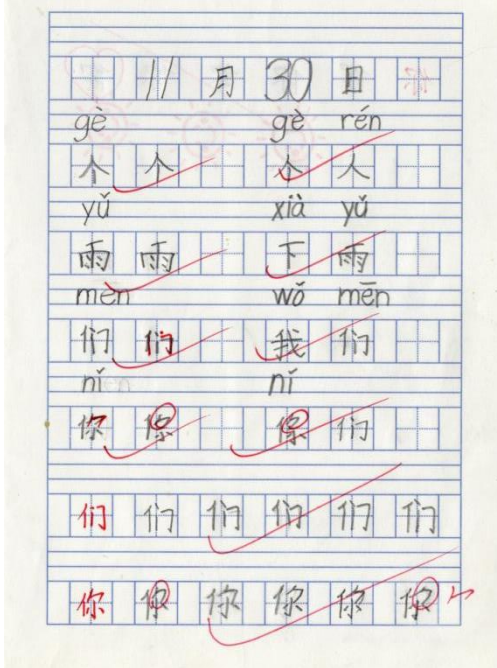 11月30日
gè gè rén
个个 个人
yǔ xià yǔ
雨雨 下雨
mēn wǒ mēn
们们 我们
nǐ nǐ
你你 你们
们们们们们们
你你你你你你